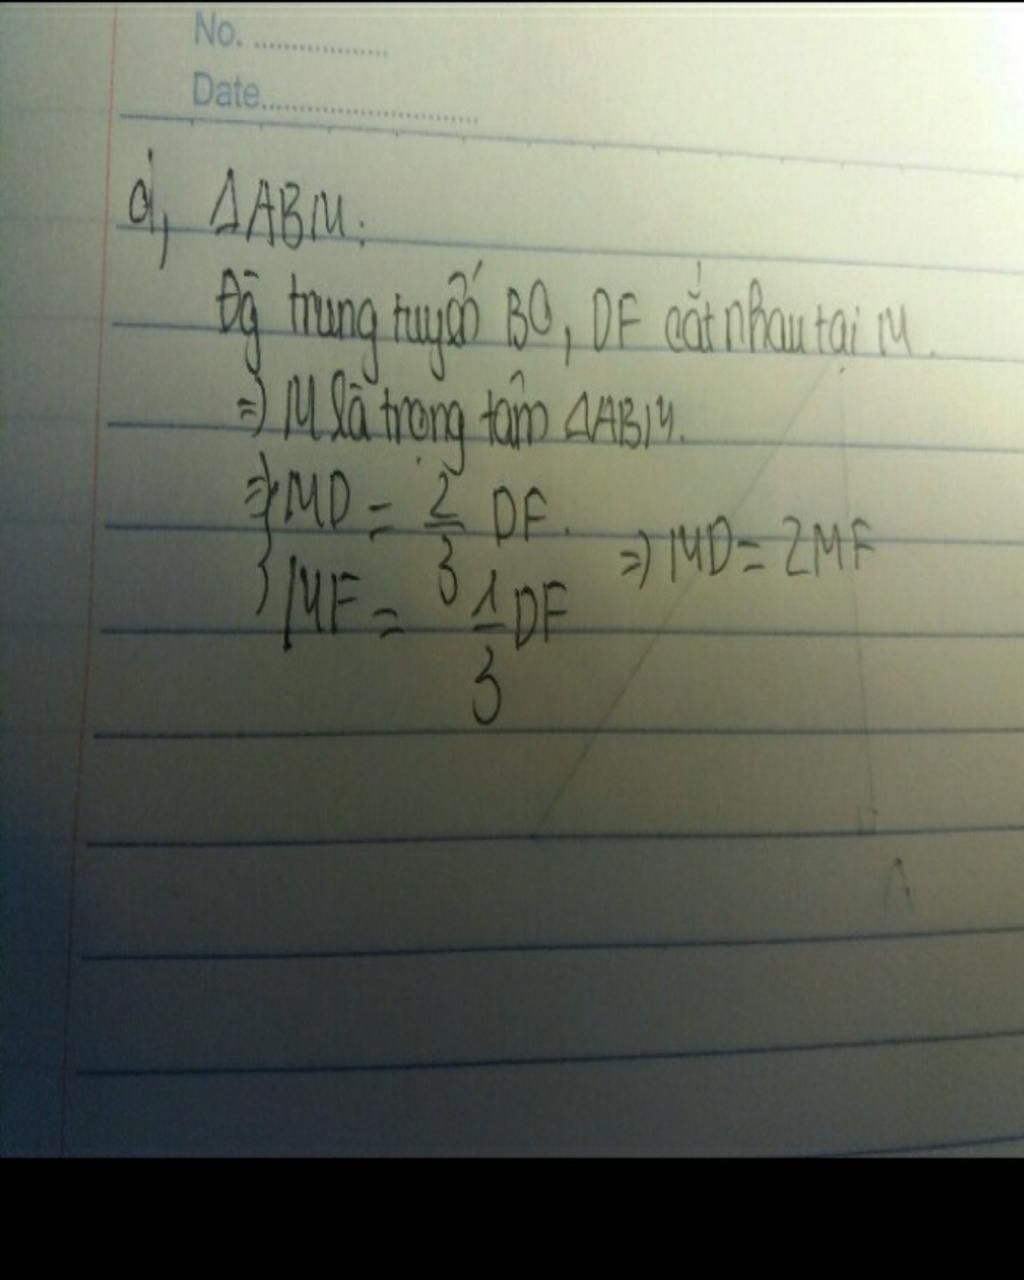 No. ................
Date..........................
d, ΔABM:
Đg trung tuyến BO, DF cắt nhau tại M.
=) M là trọng tâm ΔABM.
=) MD = 2/3 DF.
MF = 1/3 DF =) MD = 2MF
A